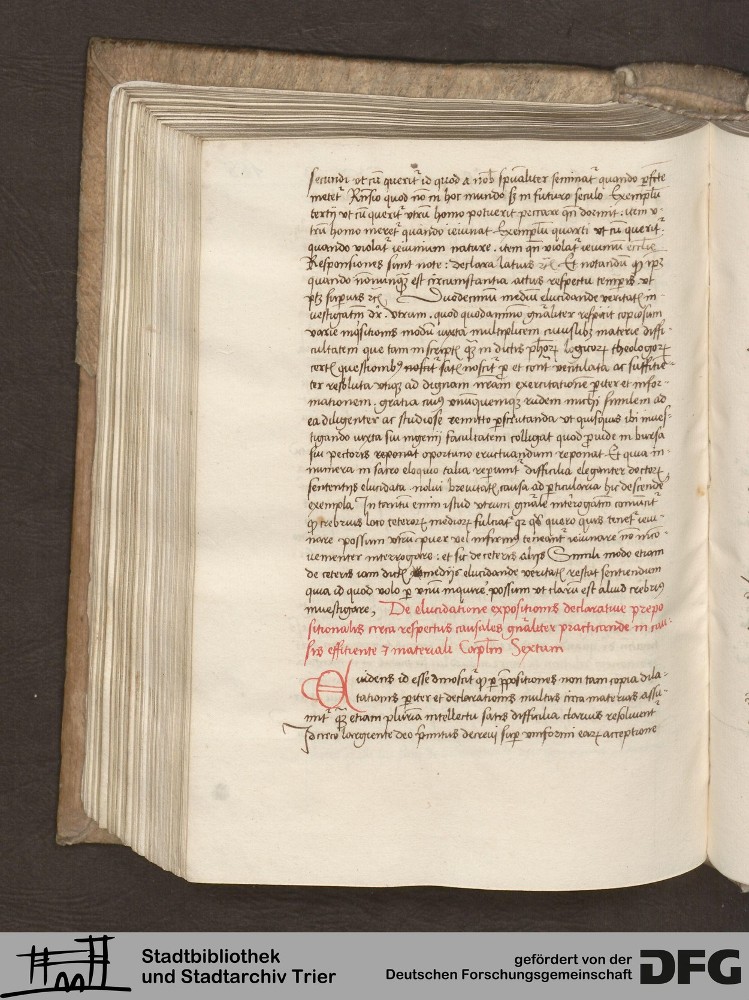 secundi vt cū querit᷑ id quod a nob̄ sp̄ualiter seminat᷑ quando ꝑfcte
metet᷑ Rn̄sio quod nō in hoc mundo sꝫ in futuro seculo Exemplū
tertij vt cū querit᷑ vtrū homo potuerit peccare qn̄ dormit. item v-
trū homo meret᷑ quando ieiunat Exemplū quarti vt cū querit᷑.
quando violat᷑ ieiunium nature. item qn̄ violat᷑ ieiuniū ecclīe
Responsiones sunt note: declara latius Et notandū ꝙ ipꝫ
quando nōnunqꝫ est circumstantia actus respectu temporis vt
Duodecimū mediū elucidande veritatis in
vestigatīm dr̄. vtrum. quod quodāmmo gn̄aliter respicit copiosum
varie inqͥsitionis modū iuxta multiplicem cuiuslibꝫ materie diffi-
cultatem que tam in scriptꝭ qꝫ in dictis ph̄orꝝ logicorꝝ theologorꝝ
certꝭ questionibꝰ noscit᷑ pro et cont ventilata ac suffitie-
ter resoluta vtiqꝫ ad dignam nr̄am exercitatione pariter et infor-
mationem. gratia cuiꝰ vnūquemqꝫ rudem michi similem ad
ea diligenter ac studiose remitto ꝑscrutanda vt quisquis ibi inues-
tigando iuxta sui ingenij facultatem colligat quod prouide in bursa
sui pectoris reponat oportuno eructuandum reponat. Et quia in-
numera in sacro eloquio talia reperiunt᷑ difficilia eleganter doctorꝝ
sententijs elucidata nolui breuitatis causa ad ꝑticularia hic descende
exempla In tantū enim istud vtrum gn̄ale interrogatīm
ꝙ crebrius loco ceterorꝝ mediorꝝ fulciat᷑ qꝛ quero quis tenet᷑ ieiu-
nare possum vtrū puer vel infirmꝰ teneant᷑ ieiunare nō inco-
uenienter interrogare: et sic de ceteris alijs Simili modo etiam
de ceteris iam dictꝭ medijs elucidande veritatꝭ restat sentiendum
quia id quod volo ꝑ vnū inquire. possum vt clarū est aliud crebriꝰ
inuestigare, De elucidatione expositionis declaratiue prepo
sitionalis circa respectus causales gn̄aliter practicande in cau-
sis effitiente ⁊ materiali Capl̄m Sextum
Euidens id esse dinoscit᷑ ꝙ ꝑ p̄positiones non tam copia dila-
tationis pariter et declarationis multas circa materias assu-
mit᷑ qꝫ etiam plurima intellectu satis difficilia clarius resoluunt᷑
Idcirco largiente deo primitus decreui super vniformi earꝝ acceptione
Stadtbibliothek
und Stadtarchiv Trier
gefördert von der
Deutschen Forschungsgemeinschaft
DFG